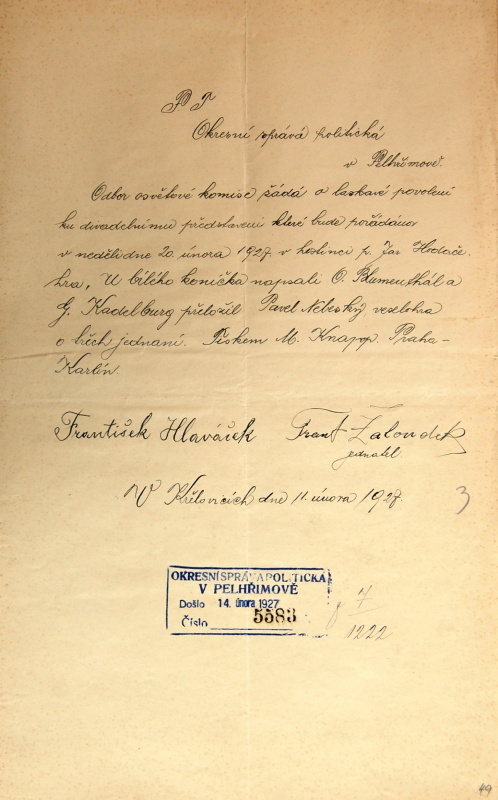 P. T.
Okresní správa politická
v Pelhřimově.
Odbor osvětové komise žádá o laskavé povolení
ku divadelnímu představení které bude pořádáno
v neděli dne 20. února 1927. v hostinci p. Jar. Hodače.
hra, U bílého koníčka napsali O. Blumenthál a
G. Kadelburg přeložil Pavel Nebeský veselohra
o třech jednání. Tiskem M. Knapp. Praha-
Karlín.
František Hlaváček Frant. Žaloudek
jednatel
V Křelovicích dne 11. února 1927.
3
OKRESNÍ SPRÁVA POLITICKÁ
V PELHŘIMOVĚ
Došlo 14. února 1927
Číslo 5583
7
1222
49